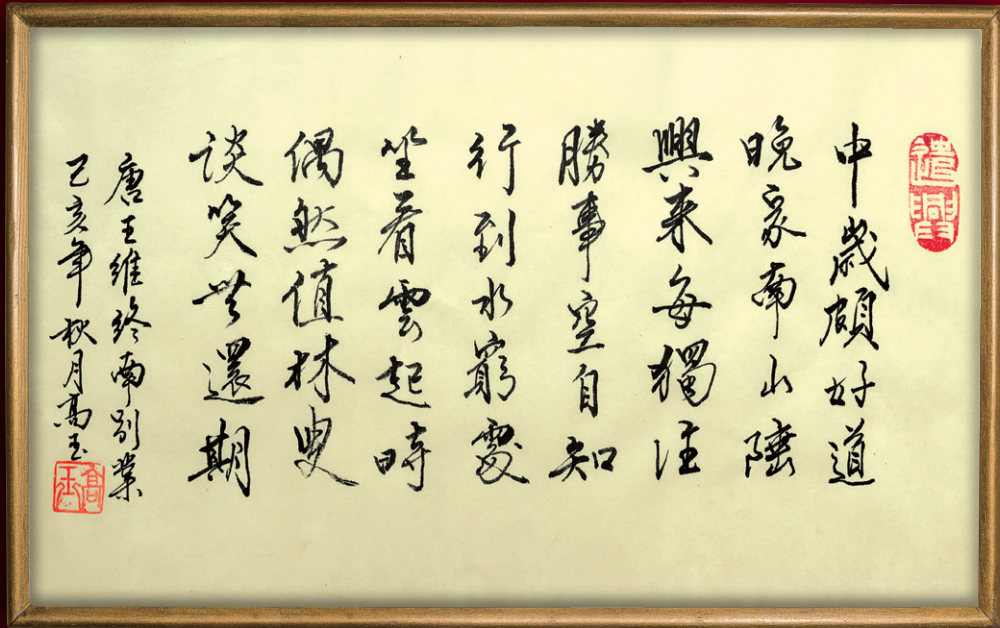 遣興
中歲頗好道
晚家南山陲
興來每獨往
勝事空自知
行到水窮處
坐看雲起時
偶然值林叟
談笑无還期
唐王維終南別業
己亥年秋月高玉
高玉